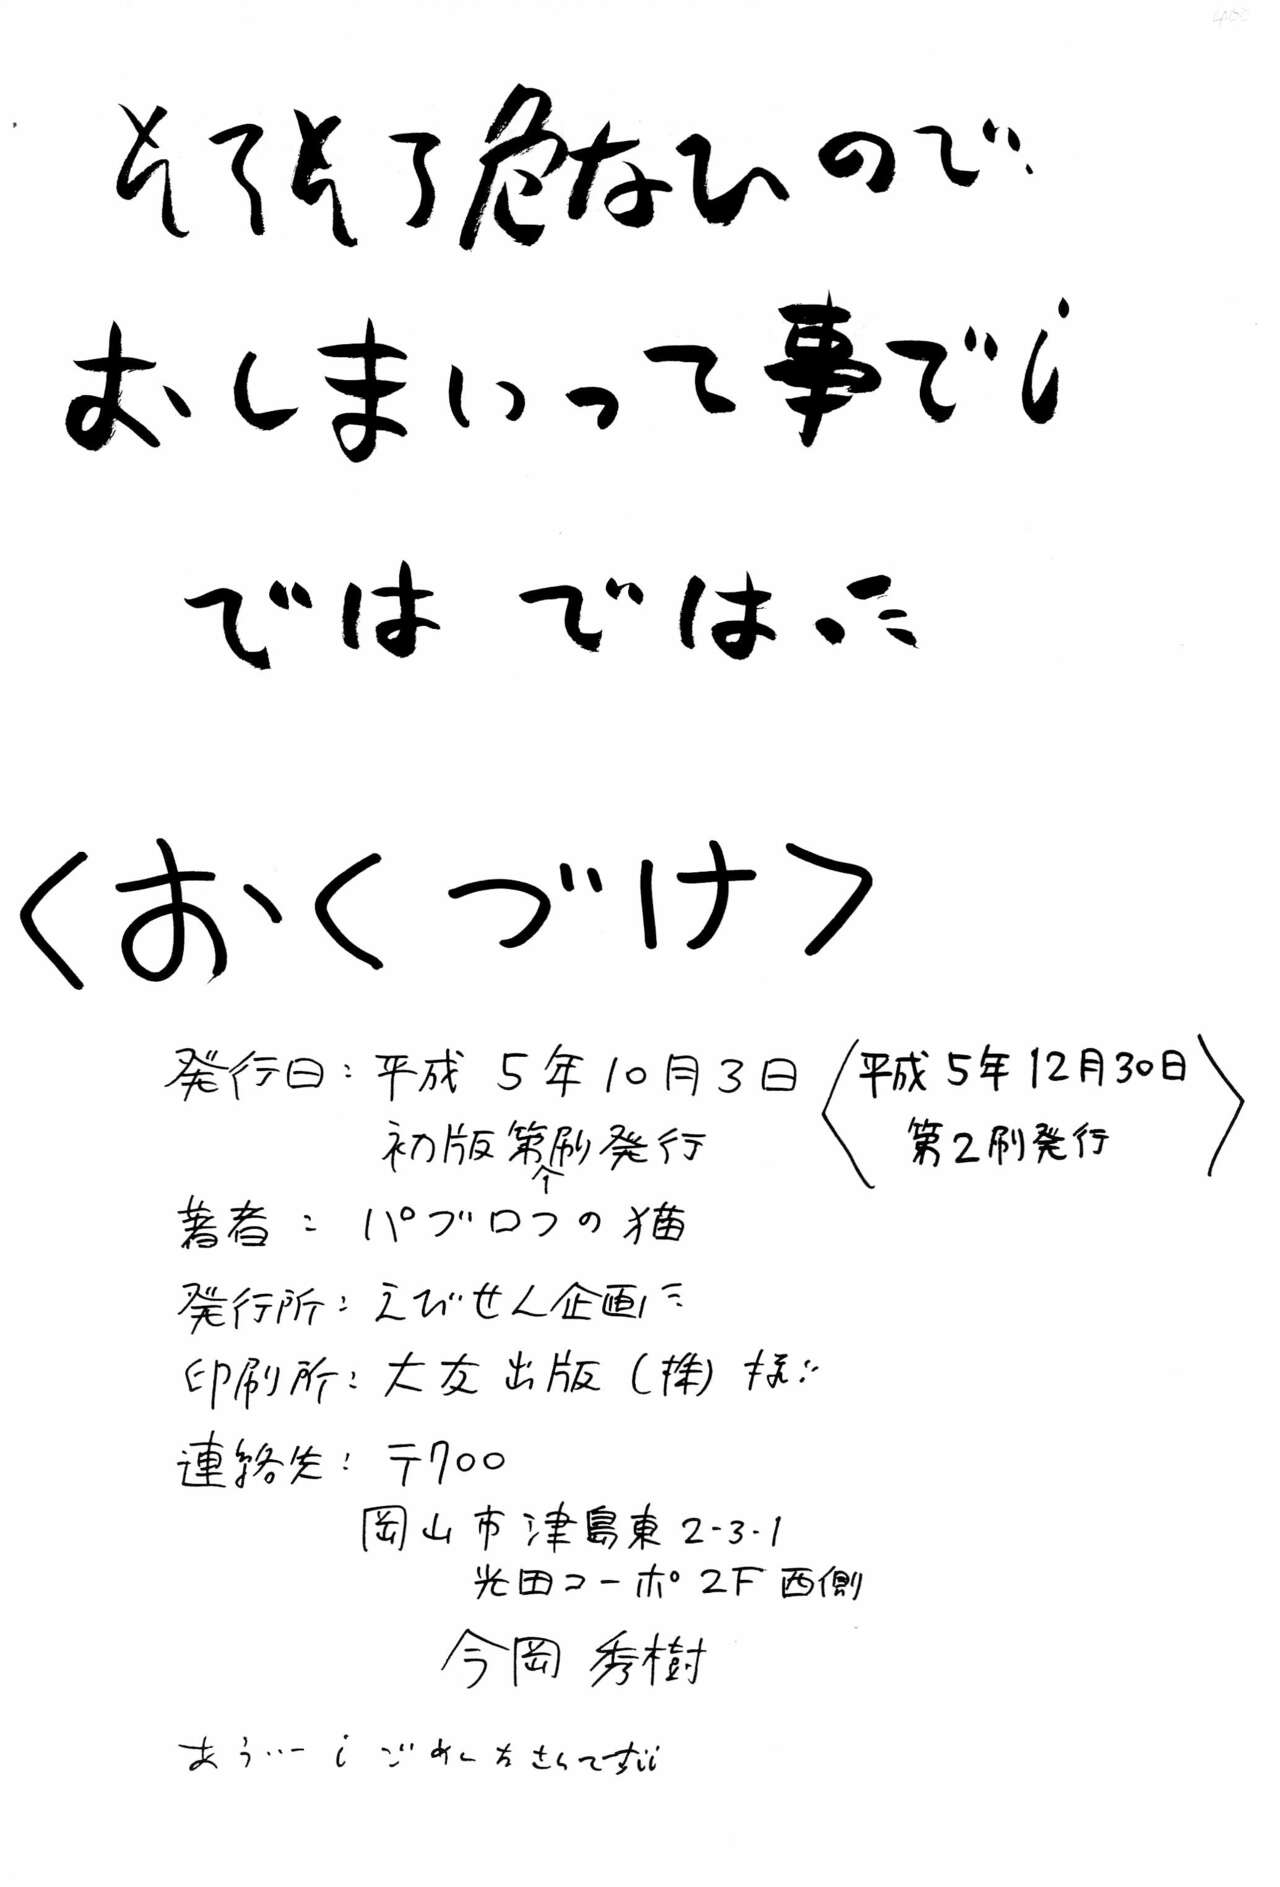 そろそろ危なひので
おしまいって事で¡
ではでは∵
〈おくづけ〉
発行日:平成5年10月3日
初版第1刷発行
〈平成5年12月30日
第2刷発行〉
著者:パブロフの猫
発行所:えびせん企画
印刷所:大友出版(株)様
連絡先:〒700
岡山市津島東2-3-1
光田コーポ2F西側
今岡 秀樹
あう…ー¡ごめんなさいですi¡